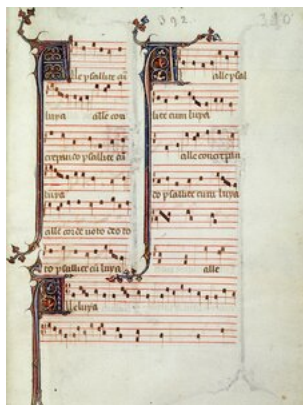 392.
390
Alle psallite cū
luya alle con
crepando psallite cū
luya
alle corde voto deo to
to psallite cū luya
Alle psal
lite cum luya
alle concrepan
do psallite cum luya
alle
Alleluya